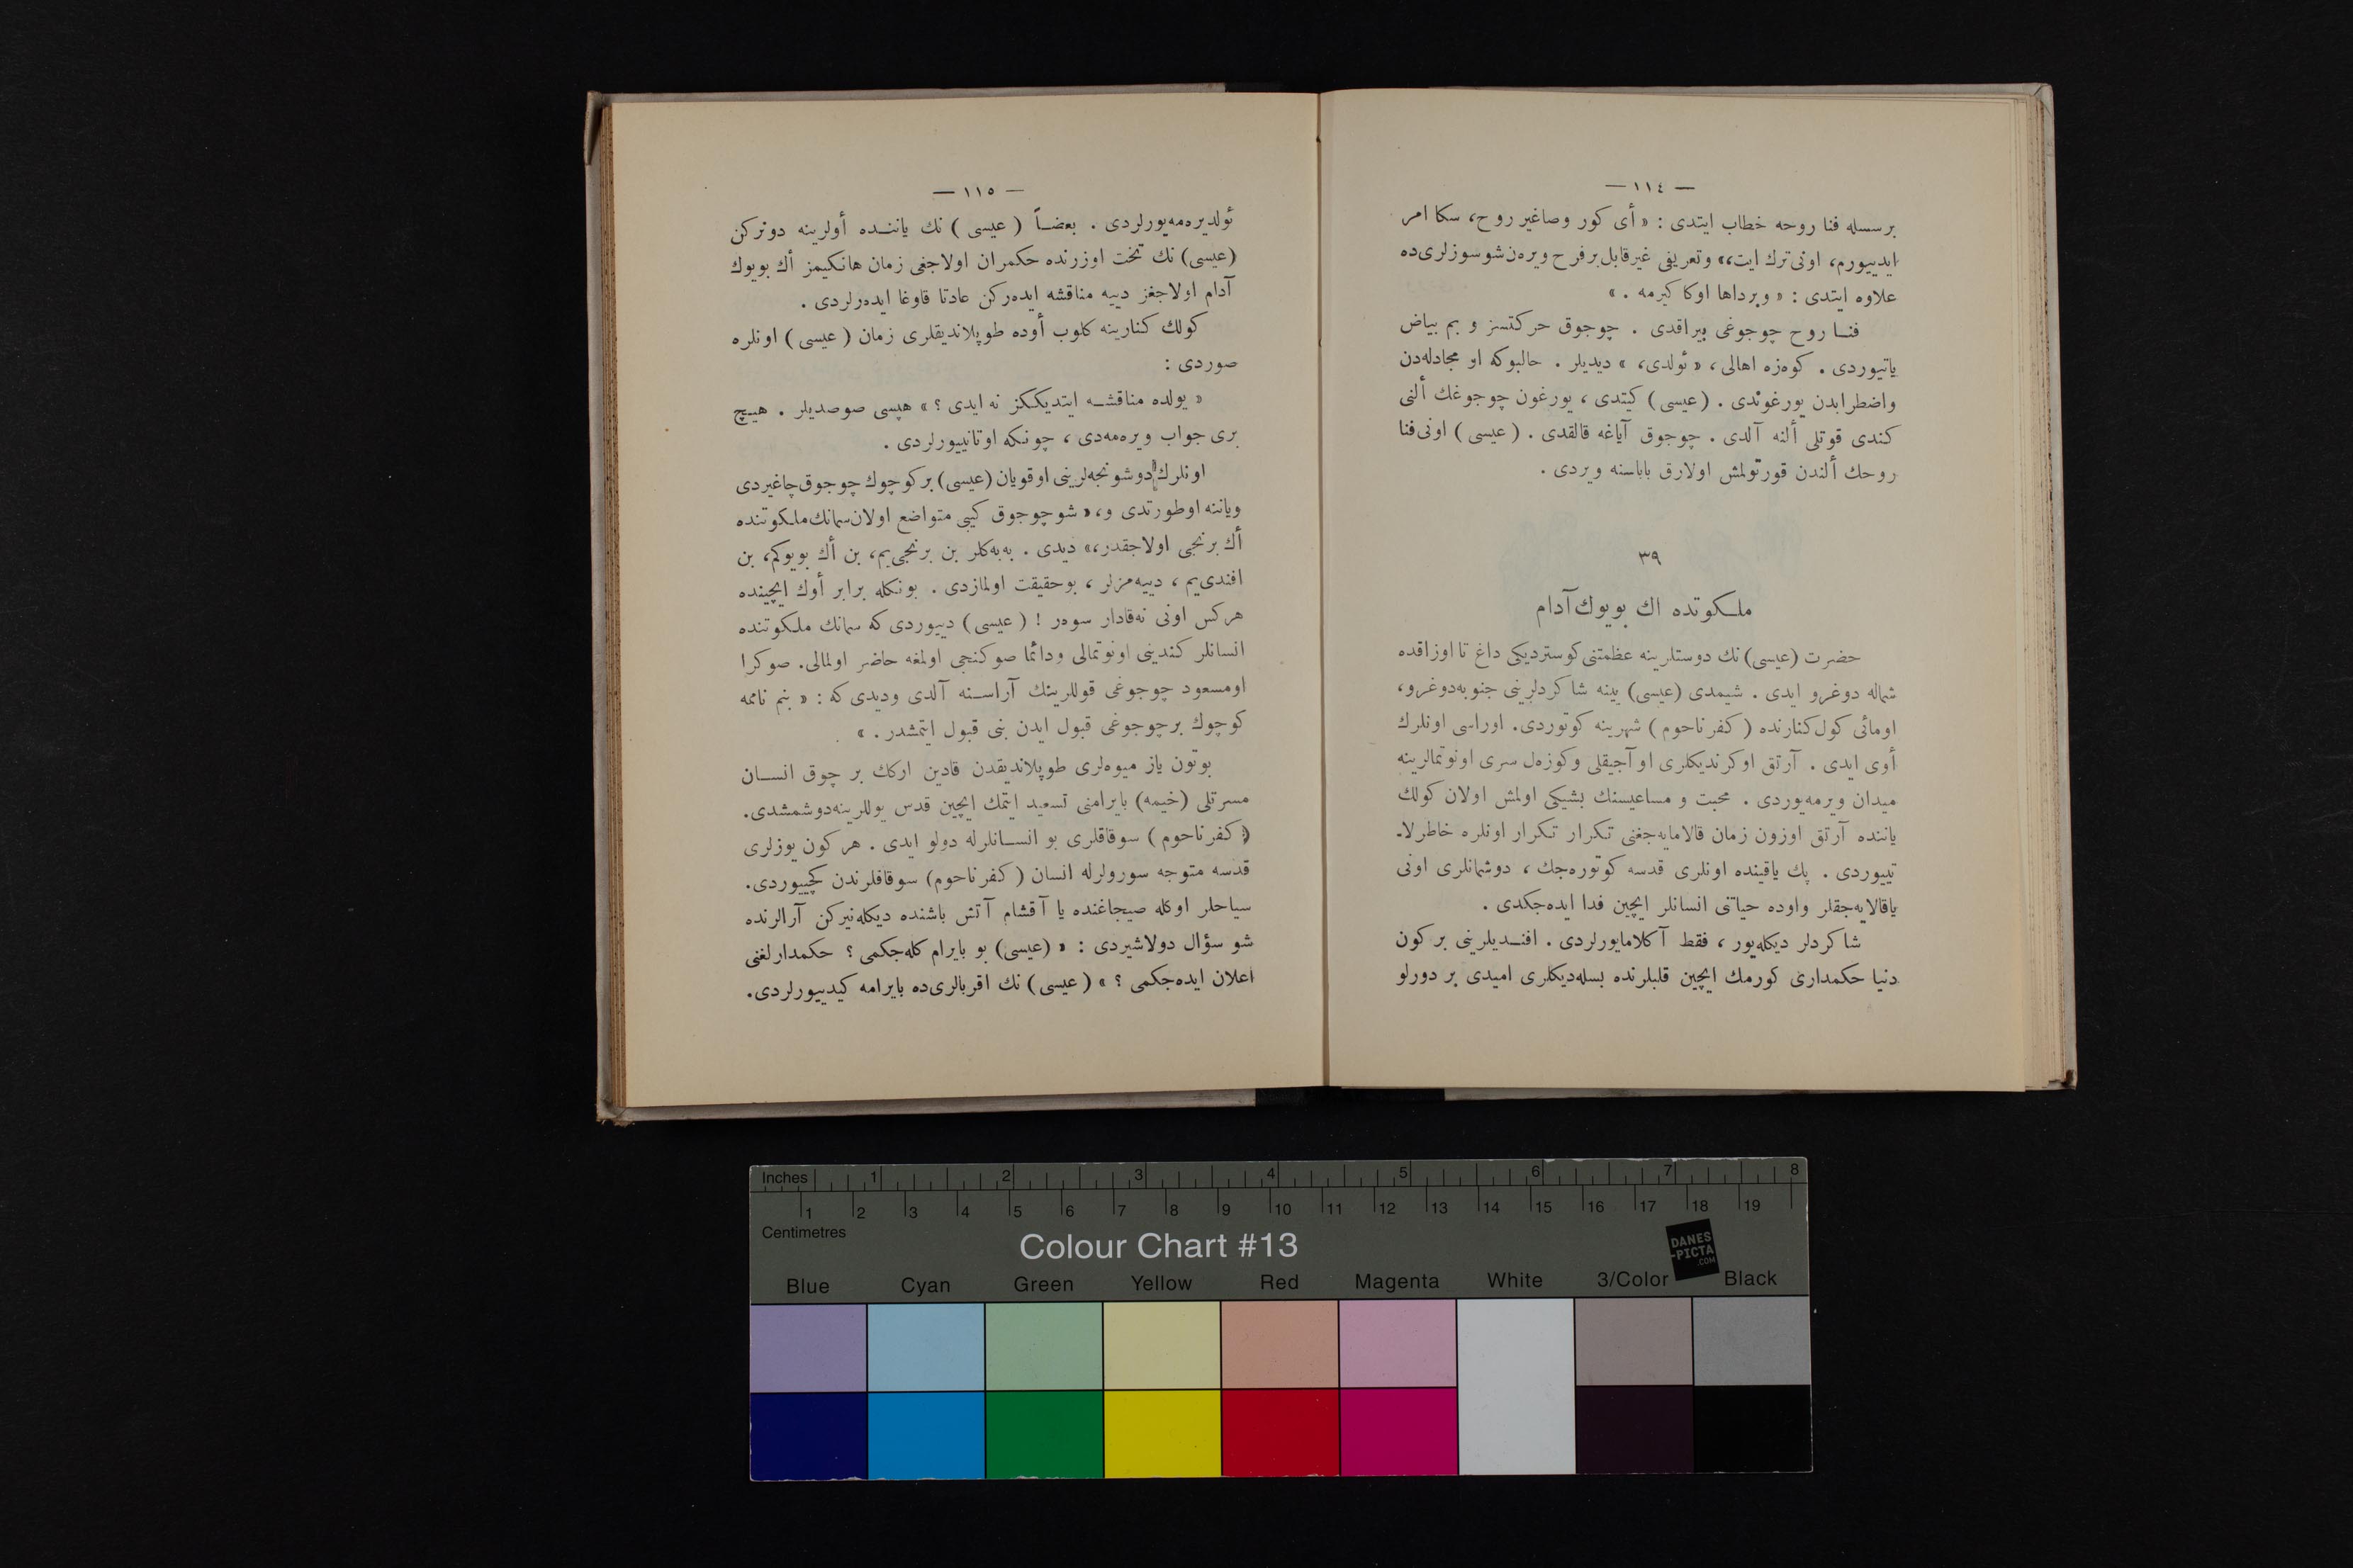 — ١١٤ —
برسسله فنا روحه خطاب ایتدی : « أی کور وصاغیر روح، سکا امر
ایدییورم، اونی ترك ایت،» وتعریفی غیرقابل بر فرح ویره‌ن شو سوزلری ده
علاوه ایتدی : « وبرداها اوکا کیرمه . »
فنـا روح چوجوغی بیراقدی . چوجوق حرکتسز و بم بیاض
یاتیوردی . کوه‌زه اهالی، « ئولدی، » دیدیلر . حالبوکه او مجادله‌دن
واضطرابدن یورغوندی . (عیسی) کیتدی ، یورغون چوجوغك ألنی
کندی قوتلی ألنه آلدی . چوجوق آیاغه قالقدی . (عیسی) اونی فنا
روحك ألندن قورتولمش اولارق باباسنه ویردی .
٣٩
ملـکوتده اك بویوك آدام
حضرت (عیسی) نك دوستلرینه عظمتنی کوستردیکی داغ تا اوزاقده
شماله دوغرو ایدی . شیمدی (عیسی) یینه شاکردلرینی جنوبه دوغرو،
اومائی کول کنارنده (کفرناحوم) شهرینه کوتوردی. اوراسی اونلرك
أوی ایدی . آرتق اوکرندیکلری او آجیقلی وکوزه‌ل سری اونوتمالرینه
میدان ویرمه‌یوردی . محبت و مساعیسنك بشیکی اولمش اولان کولك
یاننده آرتق اوزون زمان قالامایه‌جغنی تـکرار تـکرار اونلره خاطرلاـ
تییوردی . پك یاقینده اونلری قدسه کوتوره‌جك ، دوشمانلری اونی
یاقالایه‌جقلر واوده حیاتنی انسانلر ایچین فدا ایده‌جکدی .
شاکردلر دیکله‌یور ، فقط آکلامایورلردی . افنـدیلرینی بر کون
دنیا حکمداری کورمك ایچین قلبلرنده بسله‌دیکلری امیدی بر دورلو
— ١١٥ —
ئولدیره‌مه‌یورلردی . بعضـاً (عیسی) نك یاننـده أولرینه دونرکن
(عیسی) نك تخت اوزرنده حکمران اولاجغی زمان هانکیمز أك بویوك
آدام اولاجغز دییه مناقشه ایده‌رکن عادتا قاوغا ایده‌رلردی .
کولك کنارینه کلوب أوده طوپلاندیقلری زمان (عیسی) اونلره
صوردی :
« یولده مناقشـه ایتدیککز نه ایدی ؟ » هپسی صوصدیلر . هیـچ
بری جواب ویره‌مه‌دی ، چونکه اوتانییورلردی .
اونلرك دوشونجه‌لرینی اوقویان (عیسی) بر کوچوك چوجوق چاغیردی
ویاننه اوطورتدی و، « شو چوجوق کبی متواضع اولان سمانك ملـکوتنده
أك برنجی اولاجقدر،» دیدی . به‌به‌کلر بن برنجی‌یم، بن أك بویوکم، بن
افندی‌یم ، دییه‌مزلر ، بو حقیقت اولمازدی . بونکله برابر أوك ایچینده
هرکس اونی نه‌قادار سوه‌ر ! (عیسی) دییوردی که سمانك ملـکوتنده
انسانلر کندینی اونوتمالی ودائما صوکنجی اولمغه حاضر اولمالی. صوکرا
اومسعود چوجوغی قوللرینك آراسـنه آلدی ودیدی که : « بنم نامه
کوچوك بر چوجوغی قبول ایدن بنی قبول ایتمشدر . »
بوتون یاز میوه‌لری طوپلاندیقدن قادین ارکك بر چوق انسـان
مسرتلی (خیمه) بایرامنی تسعید ایتمك ایچین قدس یوللرینه دوشمشدی.
(کفرناحوم) سوقاقلری بو انسـانلرله دولو ایدی . هر کون یوزلری
قدسه متوجه سورولرله انسان (کفرناحوم) سوقاقلرندن کچییوردی.
سیاحلر اوکله صیجاغنده یا آقشام آتش باشنده دیکله‌نیرکن آرالرنده
شو سؤال دولاشیردی : « (عیسی) بو بایرام کله‌جکمی ؟ حکمدارلغنی
اعلان ایده‌جکمی ؟ » (عیسی) نك اقربالری ده بایرامه کیدییورلردی.
Inches 1 2 3 4 5 6 7 8
1 2 3 4 5 6 7 8 9 10 11 12 13 14 15 16 17 18 19
Centimetres
Colour Chart #13
DANES
-PICTA
.COM
Blue Cyan Green Yellow Red Magenta White 3/Color Black